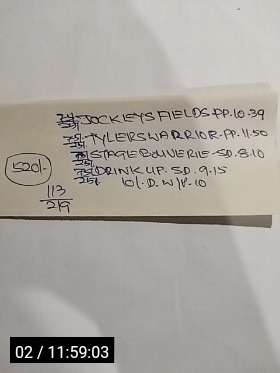 JOCKEYSFIELDS.PP.10.39
TYLERSWARRIOR.PP.11.50
STAGEBOUVERIE-SD.8.10
DRINKUP.SD.9.15
10/-D.W/P.10
520/-
113
219
02 / 11:59:03